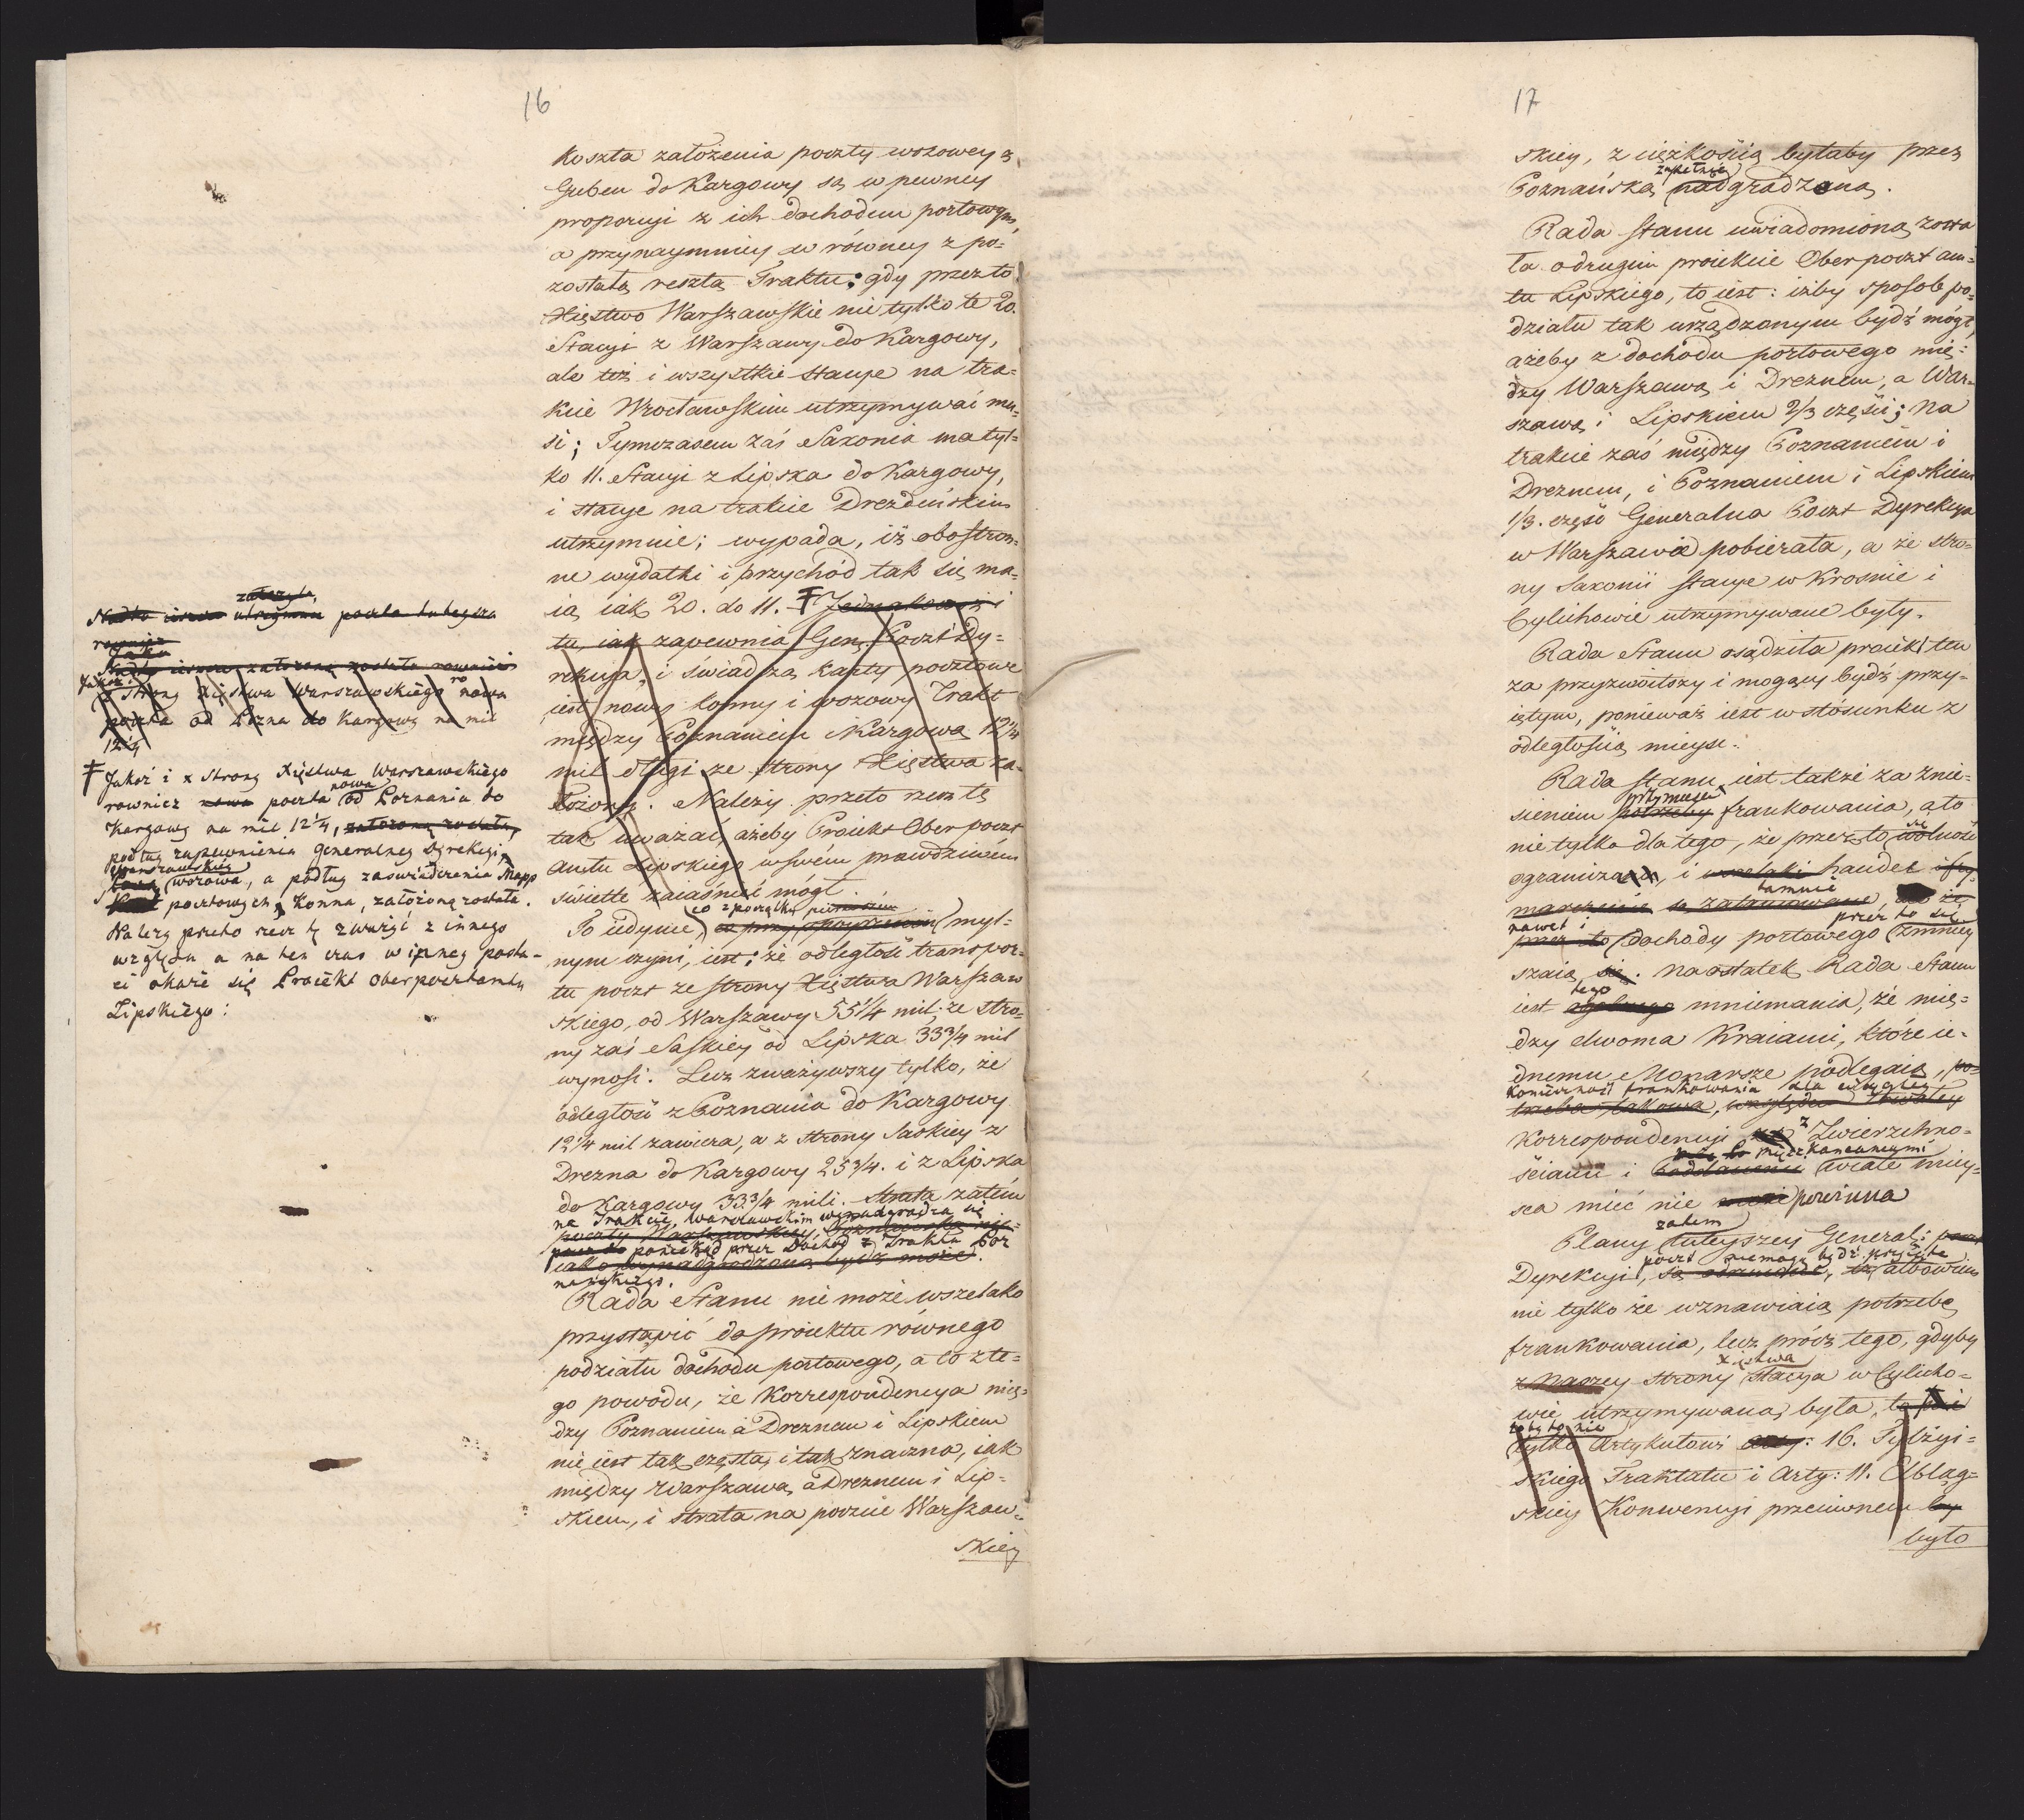 16
koszta założenia poczty wozowey z
Guben do Kargowy są w pewney
proporcyi z ich dochodem portowym,
a przynaymniey w równey z po=
zostałą resztą Traktu: gdy przez to
Xięstwo Warszawskie nie tylko te 20.
Stacyi z Warszawy do Kargowy,
ale też i wszystkie stacye na tra=
kcie Wrocławskim utrzymywać mu=
si; Tymczasem zaś Saxonia ma tyl=
ko 11. Stacyi z Lipska do Kargowy,
i stacye na trakcie Drezdeńskim
utrzymuie; wypada, iż obostron=
ne wydatki i przychód tak się ma=
ią iak 20. do 11. Ŧ Jednakowoż i
tu, iak zapewnia Gen. Poczt Dy=
rekcya, i świadczą karty pocztowe
iest nowy konny i wozowy Trakt
między Poznaniem i Kargową 12 1/4
mil długi ze strony Xięstwa za=
łożony. Należy przeto rzecz tę
tak uważać, ażeby Proiekt Oberpoczt
amtu Lipskiego w swém prawdziwém
świetle zaiaśnieć mógł.
co z początku pierwszém
To iedynie, co przy spoyrzeniu myl=
nym czyni, iest: że odległość transpor=
tu poczt ze strony Xięstwa Warszaw
skiego, od Warszawy 55 1/4 mil: ze stro=
ny zaś Saskiey od Lipska 33 3/4 mil
wynosi. Lecz zważywszy tylko, że
odległość z Poznania do Kargowy
12 1/4 mil zawiera, a z strony Saskiey z
Drezna do Kargowy 25 3/4. i z Lipska
do Kargowy 33 3/4 mili. Strata zatém
na Trakcie, Warszawskim wynadgradza się
poczty Warszawskiey, Poznańską nie=
poniekąd przez Dochód z Traktu Poz
iako wynadgrodzoną bydź może.
nańskiego.
Rada Stanu nie może wszelako
przystąpić do proiektu równego
podziału dochodu portowego, a to z te=
go powodu, że Korrespondencya mię=
dzy Poznaniem a Dreznem i Lipskiem
nie iest tak częsta, i tak znaczna, iak
między Warszawą a Dreznem i Lip=
skiem, i strata na poczcie Warszaw=
skiey
założyła,
Nadto ieszcze utrzymuie poczta tuteysza
rownież
Nadto ieszcze założoną została rownież
Jakoż i
z Strony Xięstwa Warszawskiego nowa
poczta od Pozna do Kargowy na mil
12 1/4
Ŧ Jakoż i z Strony Xięstwa Warszawskiego
nowa
rownież nowa poczta od Poznania do
Kargowy na mil 12 1/4, założoną została,
podług zapewnienia Generalney Dyrekcyi,
Warszawskiéy
wozowa, a podług zaswiadczenia Mapp
pocztowych, Konna, założoną została.
Należy przeto rzecz tę zważyć z innego
względu a na ten czas w inney posta=
ci okaże się Proiekt oberpocztamtu
Lipskiego:
17
skiey, z ciężkością byłaby przez
zupełnie
Poznańską nadgradzoną.
Rada Stanu uwiadomioną zosta
ła o drugim proiekcie Oberpoczt am=
tu Lipskiego, to iest: iżby sposob po=
działu tak urządzonym bydź mógł,
ażeby z dochodu portowego mię=
dzy Warszawą i Dreznem, a War=
szawą i Lipskiem 2/3 części; na
trakcie zaś między Poznaniem i
Dreznem, i Poznaniem i Lipskiem
1/3. część Generalna Poczt Dyrekcya
w Warszawie pobierała, a że stro=
ny Saxonii stacye w Krosnie i
Cylichowie utrzymywane były.
Rada Stanu osądziła proiekt ten
za przyzwoitszy i mogący bydź przy=
iętym, ponieważ iest w stósunku z
odległością mieysc.
Rada Stanu, iest także za znie=
przymusu
sieniem potrzeby frankowania, a to
się
nie tylko dla tego, że przez to wolność
ogranicza, i wszelaki handel
tamuie
są zatamowane, że
nawet i przez to się
przez to dochody portowego zmniey
szaią się. Na ostatek Rada Stanu
tego
iest mniemania, że mię=
dzy dwoma Kraiami, które ie=
dnemu Monarsze podlegaią, po=
konieczność frankowania dla
trzeba takowa, względem
z
Korrespondencyi Zwierzchno=
mieszkancami
ściami i Poddanemi wcale miey=
sca mieć nie może powinna
zatem
Plany tuteyszey General:
poczt niemogą bydź przyięte
Dyrekcyi, są albowiem
nie tylko że wznawiaią potrzebę
frankowania, lecz prócz tego, gdyby
Xięstwa
z Naszey strony stacya w Cylicho=
wie utrzymywaną była,
toby to nie
tylko Artykułowi 16. Tylżyi=
skiego Traktatu i Arty: 11. Elbląg=
skiey Konwencyi przeciwnem by
było